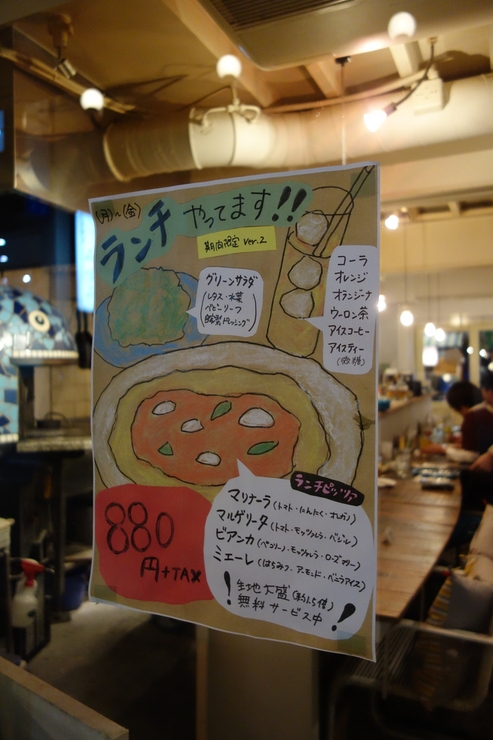 (月)~(金)
ランチ やってます!!
期間限定 ver.2
グリーンサラダ
(レタス・水菜
ベビーリーフ
自家製ドレッシング)
コーラ
オレンジ
オランジーナ
ウーロン茶
アイスコーヒー
アイスティー
(無糖)
ランチピッツァ
マリナーラ(トマト・にんにく・オレガノ)
マルゲリータ(トマト・モッツァレラ・バジル)
ビアンカ(ペコリーノ・モッツァレラ・ローズマリー)
ミエーレ(はちみつ・アーモンド・バニラアイス)
!生地大盛(約1.5倍)
無料サービス中!
880
円+TAX